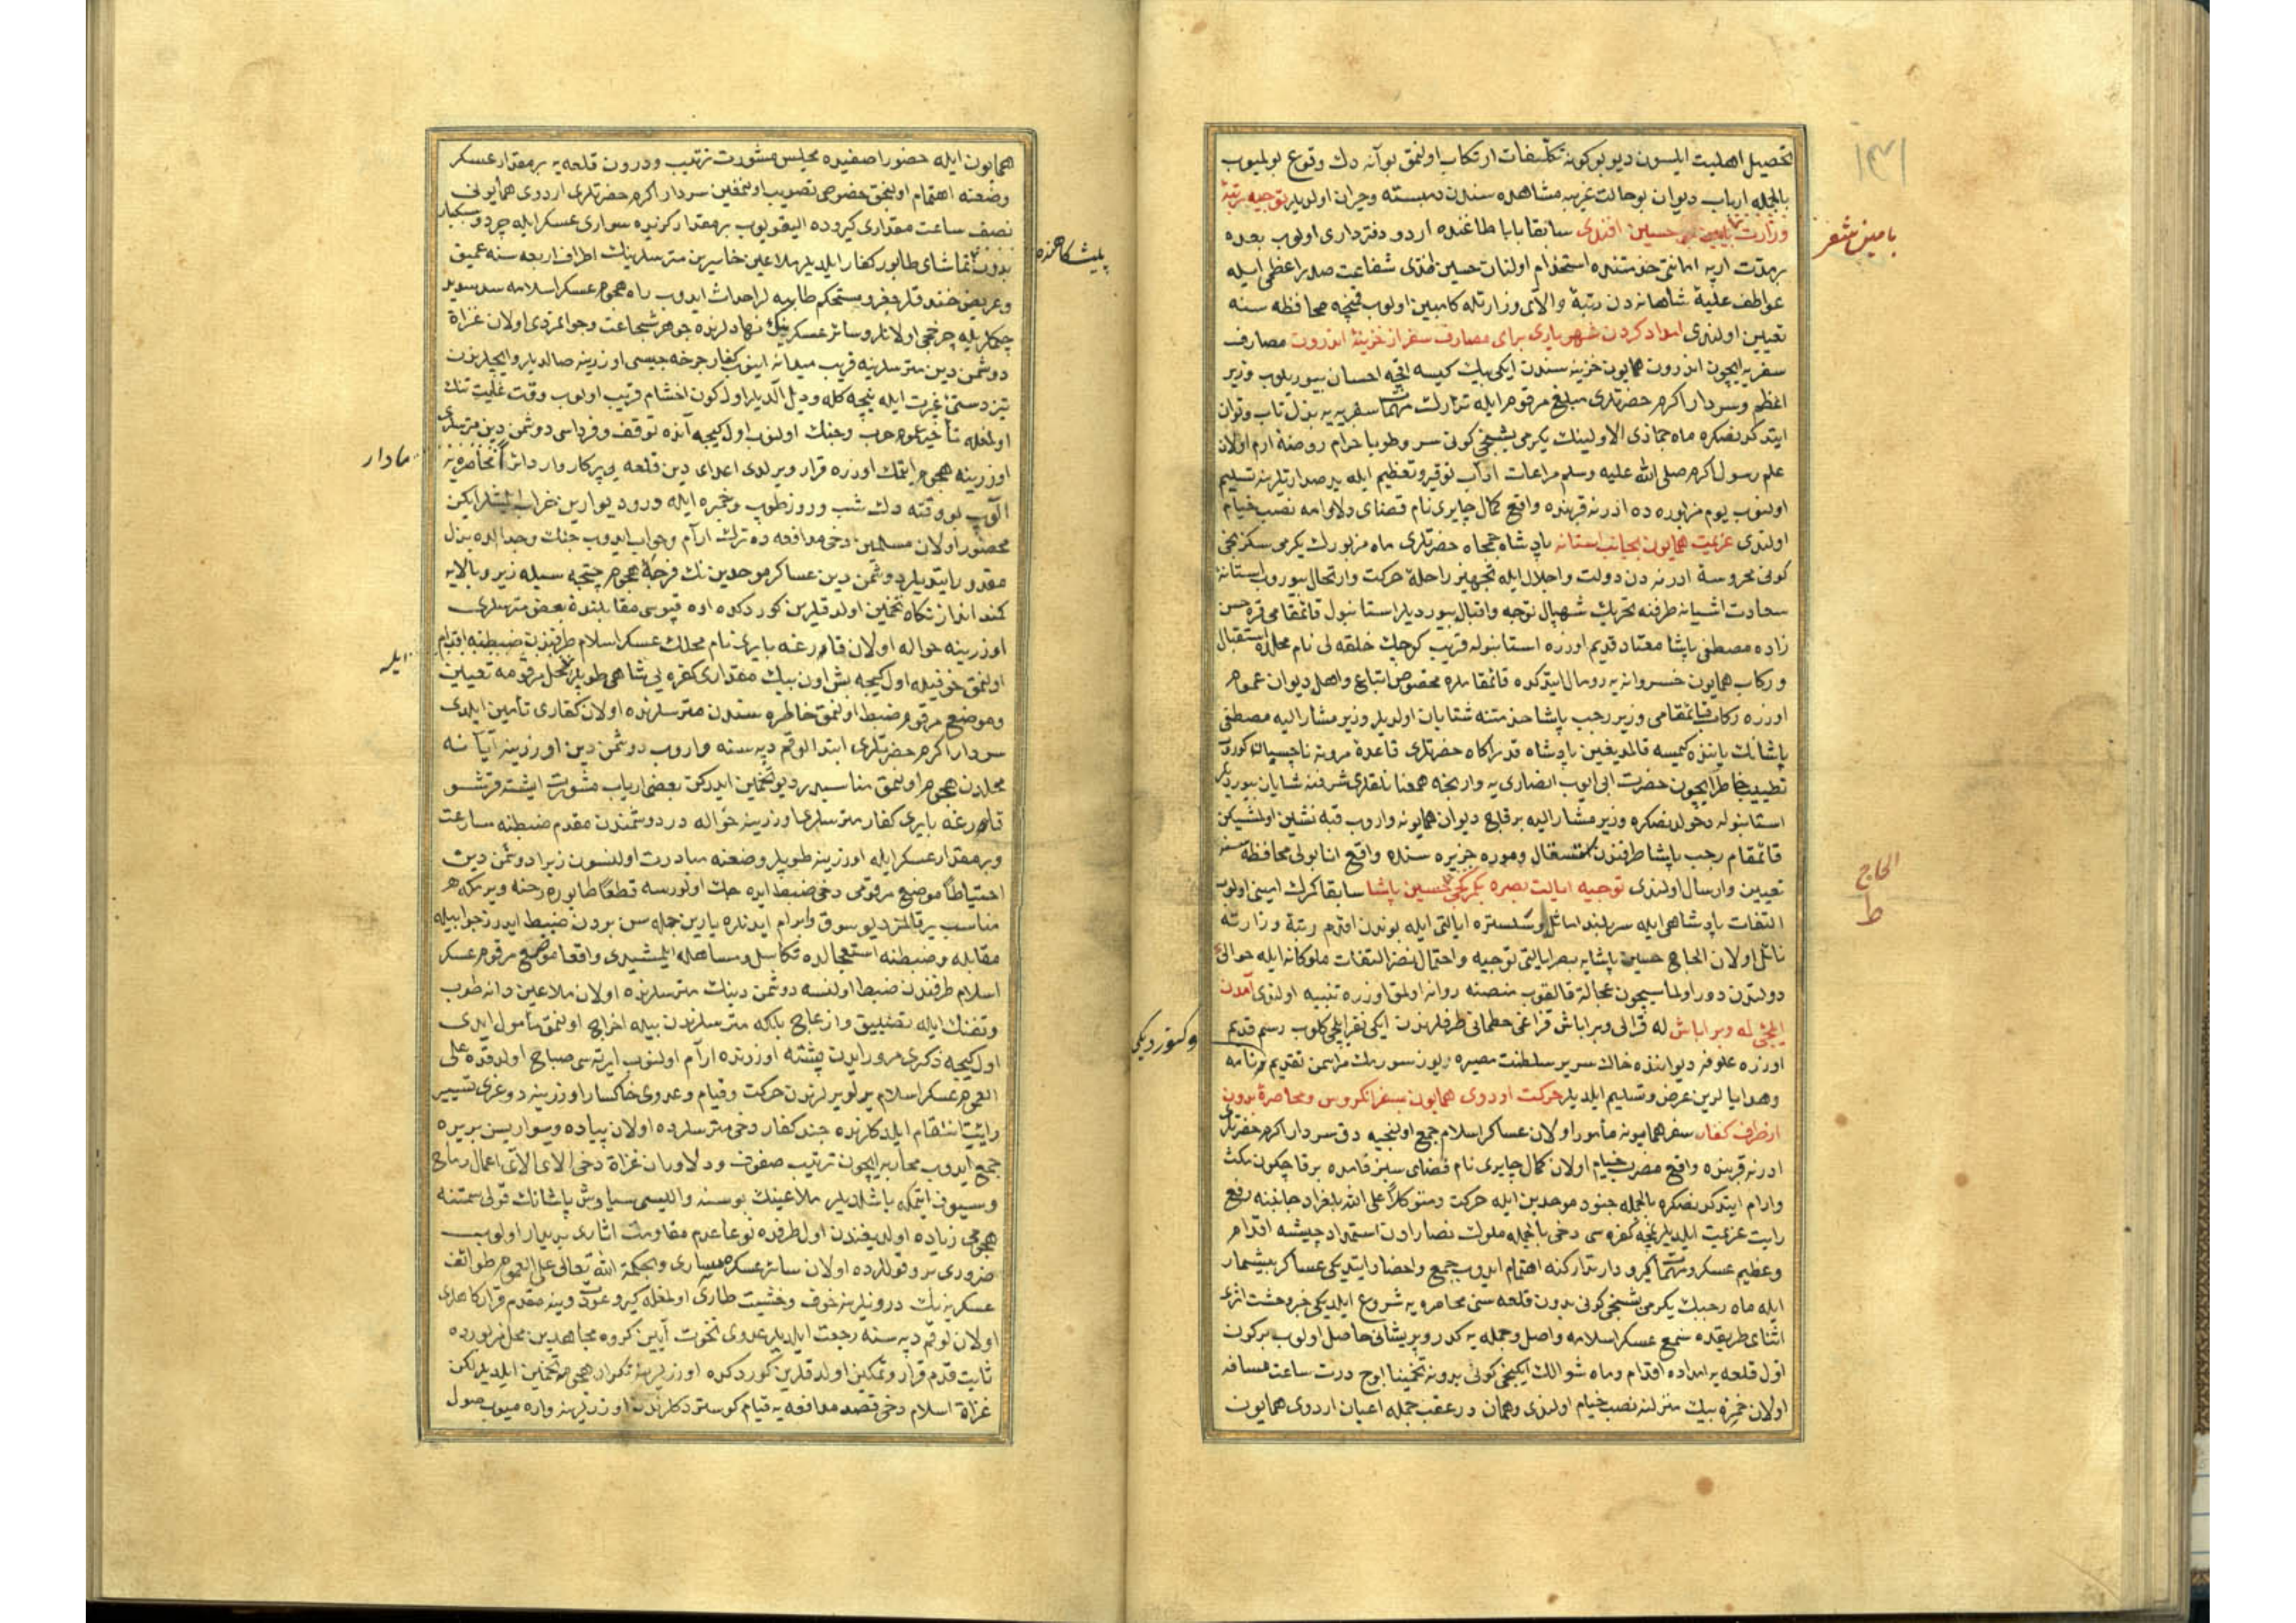 تحصیل اهلیت ایلسون دیو بو كونه تكلیفات ارتكاب اولنمق بو آنه دك وقوع بولمیوب
بالجمله ارباب دیوان بو حالت غریبه مشاهده سندن دمبسته وحیران اولدیلر توجیه رتبهٔ
وزارت حسین افندی سابقا بابا طاغنده اردو دفترداری اولوب بعده
بر مدت ارپه امانتی خدمتنده استخدام اولنان حسین افندی شفاعت صدر اعظمی ایله
عواطف علیهٔ شاهانه دن رتبهٔ والای وزارتله كامبین اولوب محافظه سنه
تعیین اولندی امداد كردن شهریاری برای مصارف سفر از خزینهٔ اندرون مصارف
سفریه ایچون اندرون همایون خزینه سندن ایكی بیك كیسه اقچه احسان بیوریلوب وزیر
اعظم وسردار اكرم حضرتلری مبلغ مرقوم ایله تدارك مهمات سفریه یه بذل تاب وتوان
ایتدكدنصكره ماه جماذی الاولینك یكرمی بشنجی كونی سر وطوبا خرام روضهٔ ارم اولان
علم رسول اكرم صلی الله علیه وسلم مراعات آداب توقیر وتعظیم ایله ید صدارتلرینه تسلیم
اولنوب یوم مزبورده ده ادرنه قربنده واقع كمال چایری نام فضای دلارامه نصب خیام
اولندی عزیمت همایون بجانب استانه پادشاه جمجاه حضرتلری ماه مزبورك یكرمی سكزنجی
كونی محروسهٔ ادرنه دن دولت واجلال ایله تجهیز راحلهٔ حركت وارتحال بیوروب استانهٔ
سعادت اشیانه طرفنه تحریك شهبال توجه واقبال بیوردیلر استانبول قائمقامی قره حسن
زاده مصطفی پاشا معتاد قدیم اوزره استانبوله قریب كوچك خلقه لی نام محلده استقبال
وركاب همایون خسروانه یه رومال ایتدكده قائمقاملره مخصوص اتباع واهل دیوان عموم
اوزره ركاب قائمقامی وزیر رجب پاشا خدمتنه شتابان اولدیلر وزیر مشار الیه مصطفی
پاشانك یاننده كیمسه قالمدیغین پادشاه قدر اكاه حضرتلری قاعدهٔ مروته ناچسپان كوروب
تطییب خاطر ایچون حضرت ابی ایوب انصاری یه وارنجه همعنانلقلری شرفنه شایان بیوردیلر
استانبوله دخولدنصكره وزیر مشار الیه بر قاچ دیوان همایونه واروب قبه نشین اولمشیكن
قائمقام رجب پاشا طرفندن وموره جزیره سنده واقع انابولی محافظه سنه
تعیین وارسال اولندی توجیه ایالت بصره بكربكی حسین پاشا سابقا كمرك امینی اولوب
التفات پادشاهی ایله سربلند اماثل وسلستره ایالتی ایله بوندن اقدم رتبهٔ وزارته
نائل اولان الحاج حسین پاشایه بصره ایالتی توجیه واحتمال نصر التفات ملوكانه ایله حوالی
دولتدن دور اولماسیچون عجالة قالقوب منصبنه روانه اولمق اوزره تنبیه اولندی آمدن
ایلچیٔ له وبراباش له قرالی وبراباش قزاغی حطمانی طرفلرندن ایكی نفر ایلچی كلوب رسم قدیم
اوزره علوفه دیواننده خاك سریر سلطنت مصیره ریوز سورمك مراسمن تقدیم ونامه
وهدایالرین عرض وتسلیم ایلدیلر حركت اوردوی همایون بسفر انكروس ومحاصرهٔ بدون
از طرف كفار سفر همایونه مأمور اولان عساكر اسلام جمع اولنجیه دق سردار اكرم حضرتلری
ادرنه قربنده واقع مضرب خیام اولان كمال چایری نام فضای سبزفامده برقاچ كون مكث
وارام ایتدكدنصكره بالجمله جنود موحدین ایله حركت ومتوكلاً علی الله بلغراد جانبنه رفع
رایت عزیمت ایلدیلر نمچه كفره سی دخی بالجمله ملوك نصارادن استمداد چیشه اقدام
وعظیم عسكر ومهمات كیرودار تداركنه اهتمام ایدوب جمع واحضار ایتدیكی عساكر بیشمار
ایله ماه رجبك یكرمی بشنجی كونی بدون قلعه سنی محاصره یه شروع ایلدیكی خبر وحشت اثری
اثنای طریقده سمع عسكر اسلامه واصل وجمله یه كدر وپریشانی حاصل اولوب بر كون
اول قلعه یه امداده اقدام وماه شوالك ایكنجی كونی بدونه تخمیناً اوچ درت ساعت مسافه
اولان حمزه بیك منزلنه نصب خیام اولندی وهمان در عقب جمله اعیان اردوی همایون
۱۳۱
الحاج
ط
همایون ایله حضور آصفیده مجلس مشورت ترتیب ودرون قلعه یه بر مقدار عسكر
وضعنه اهتمام اولنمق خصوصی تصویب اولنمغین سردار اكرم حضرتلری اردوی همایونی
نصف ساعت مقداری كیروده الیقویوب بر مقدار كزیده سواری عسكر ایله جریده وسبكبار
بدون تماشای طابور كفار ایلدیلر ملاعین خاسرین متریسلرینك اطراف اربعه سنه عمیق
وعریض خندقلر حفر ومستحكم طابیه لر احداث ایدوب راه هجوم عسكر اسلامه سد سدید
چكملریله چرخجی اولانلر وسائر عسكرینك نهادلرنده جوهر شجاعت وجوانمردی اولان غزاة
دوشمن دین متریسلرینه قریب میدانه اینوب كفار چرخه جیسی اوزرینه صالدیلر وایچلرندن
تیز دستیٔ غیرت ایله نیچه كله ودیل آلدیلر اول كون اخشام قریب اولوب وقت غایت تنك
اولمغله تأخیر عموم حرب وجنك اولنوب اول كیجه آنده توقف وفرداسی دوشمن دین متریسلری
اوزرینه هجوم ایتمك اوزره قرار ویرلدی اعدای دین قلعه یی پركاروار دائراً محاصره یه
آلوب بو وقته دك شب وروز طوپ وخمبره ایله در ودیوارین خراب ایتمشلر ایكن
محصور اولان مسلمین دخی مدافعه ده ترك آرام وخواب ایدوب جنك وجدالده بذل
مقدور ایتدیلر دوشمن دین عساكر موحدین نك فرجهٔ هجوم چتجه یی سبیله زیر وبالایه
كمند انداز نكاه تخمین اولدقلرین كوردكده اوه قپوسی مقابلنده بعض متریسلری
اوزرینه حواله اولان قاورغه بایری نام محلك عسكر اسلام طرفندن ضبطنه اقدام
اولنمق خوفیله اول كیجه بش اون بیك مقداری كفره یی شاهی طوپلر ایله محل مرقومه تعیین
وموضع مرقوم ضبط اولنمق خاطره سندن متریسلرنده اولان كفاری تأمین ایلدی
سردار اكرم حضرتلری ابتدا لوقم دپه سنه واروب دوشمن دین اوزرینه آیا نه
محلدن هجوم اولنمق مناسبدر دیو تخمین ایدركن بعض ارباب مشورت ایشته قرشو
قاورغه بایری كفار متریسلری اوزرینه حواله در دوشمندن مقدم ضبطنه مسارعت
وبر مقدار عسكر ایله اوزرینه طوپلر وضعنه مبادرت اولنسون زیرا دوشمن دین
احتیاطاً موضع مرقومی دخی ضبط ایده جك اولورسه قطعا طابوره رخنه ویرمكه هر
مناسب یر قالمز دیو سوق وابرام ایدنلره یارین جمله سن بردن ضبط ایدرز جوابیله
مقابله وضبطنه استعجالده تكاسل ومساهله ایلمشیدی واقعا موضع مرقوم عسكر
اسلام طرفندن ضبط اولنسه دوشمن دینك متریسلرنده اولان ملاعین دانه طوپ
وتفنك ایله تضییق وازعاج بلكه متریسلرندن بیله اخراج اولنمق مأمول ایدی
اول كیجه ذكری مرور ایدن پشته اوزرنده ارام اولنوب ایرته سی صباح اولدقده علی
العموم عسكر اسلام یرلو یرلرندن حركت وقیام وعدوی خاكسار اوزرینه دوغری تسییر
رایت انتقام ایلدكلرنده جند كفار دخی متریسلرده اولان پیاده وسواریسن بریره
جمع ایدوب محاربه ایچون ترتیب صفوف ودلاوران غزاة دخی الای الای اعمال رماح
وسیوف ایتمكه باشلدیلر ملاعینك بوسنه والیسی سیاوش پاشانك قولی سمتنه
هجومی زیاده اولدیغندن اول طرفده نوعا عدم مقاومت اثاری بدیدار اولوب
ضروری بو قوللرده اولان سائر عسكره ساری وبحكمة الله تعالی علی العموم طوائف
عسكریه نك درونلرینه خوف وخشیت طاری اولمغله كیرو عودت وینه مقدم قراركاهلری
اولان لوقم دپه سنه رجعت ایلدیلر عدوی نخوت آیین كروه مجاهدین محل مزبورده
ثابت قدم قرار وتمكین اولدقلرین كوردكده اوزرلرینه تكرار هجومه تخمین ایلدیلر لكن
غزاة اسلام دخی قصد مدافعه یه قیام كوستردكلرندن اوزرلرینه واره میوب صول
مادار
ایله